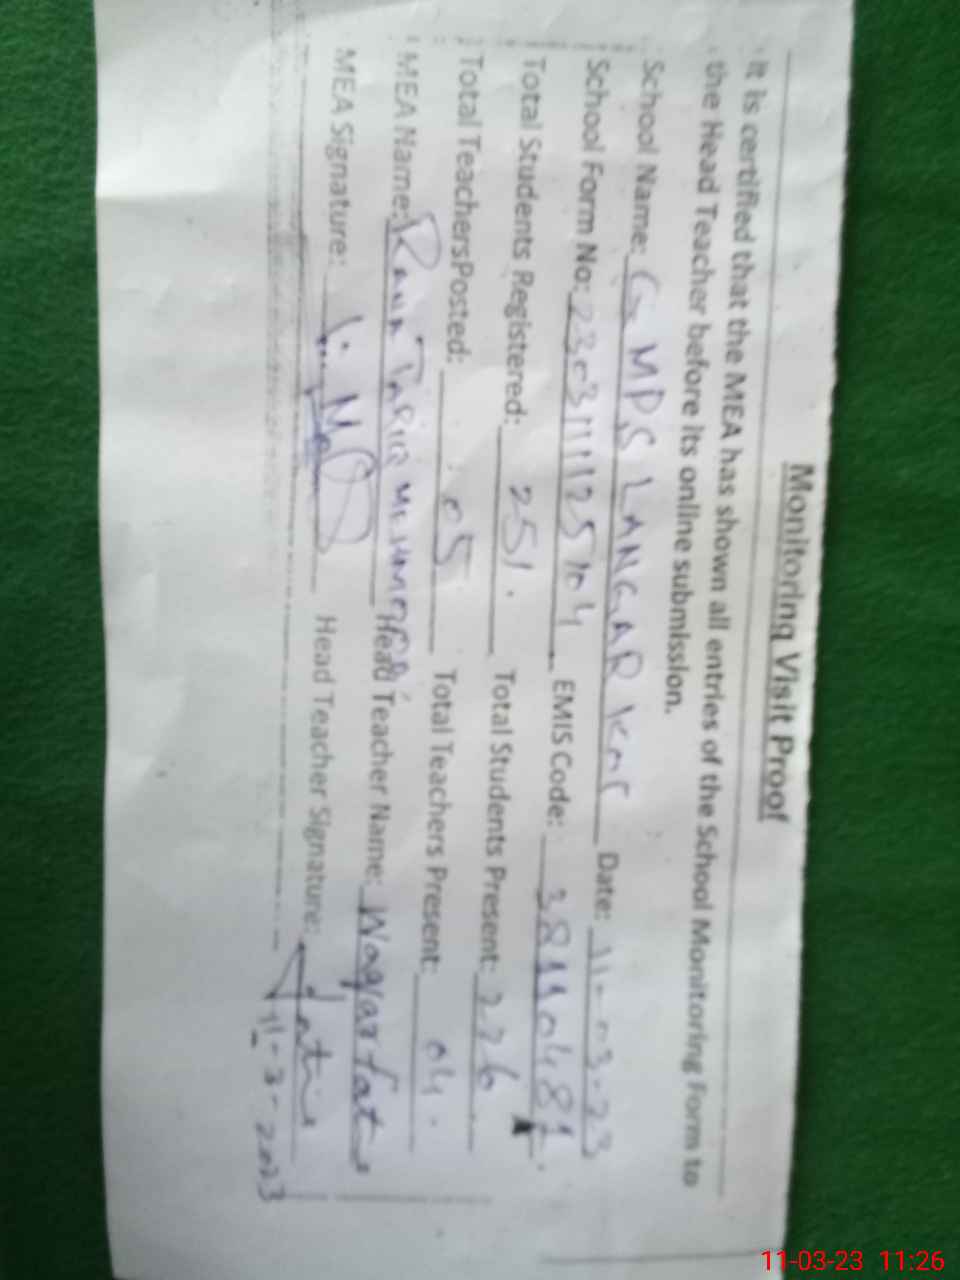 Monitoring Visit Proof
It is certified that the MEA has shown all entries of the School Monitoring Form to
the Head Teacher before its online submission.
School Name: G MPS LANGAR Date: 11-03-23
School Form No: EMIS Code:
Total Students Registered: 251. Total Students Present: 226
Total Teachers Posted: 05 Total Teachers Present: 04.
MEA Name: Rana TARIQ Head Teacher Name:
MEA Signature: Head Teacher Signature:
11-3-2023
11-03-23 11:26